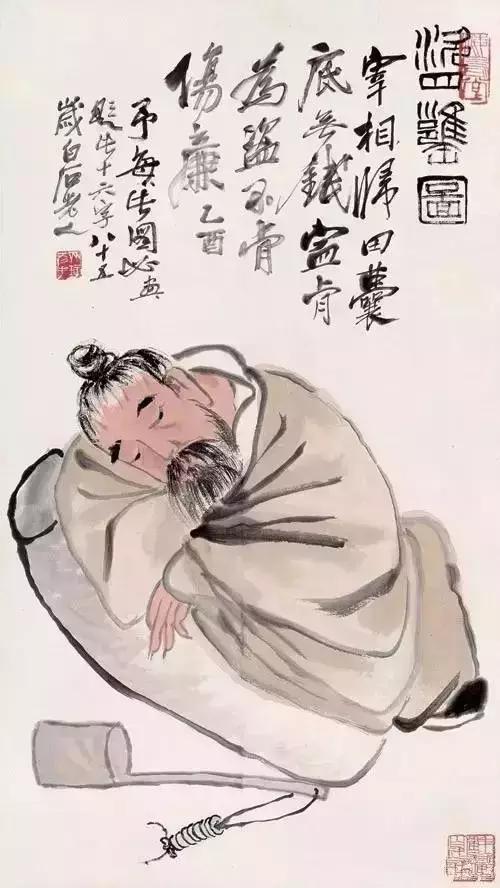 盜甕圖
宰相歸田囊
底无錢寍肯
為盜不肯
傷廉 乙酉
予每作圖必
題此十六字八十五
歲白石老人